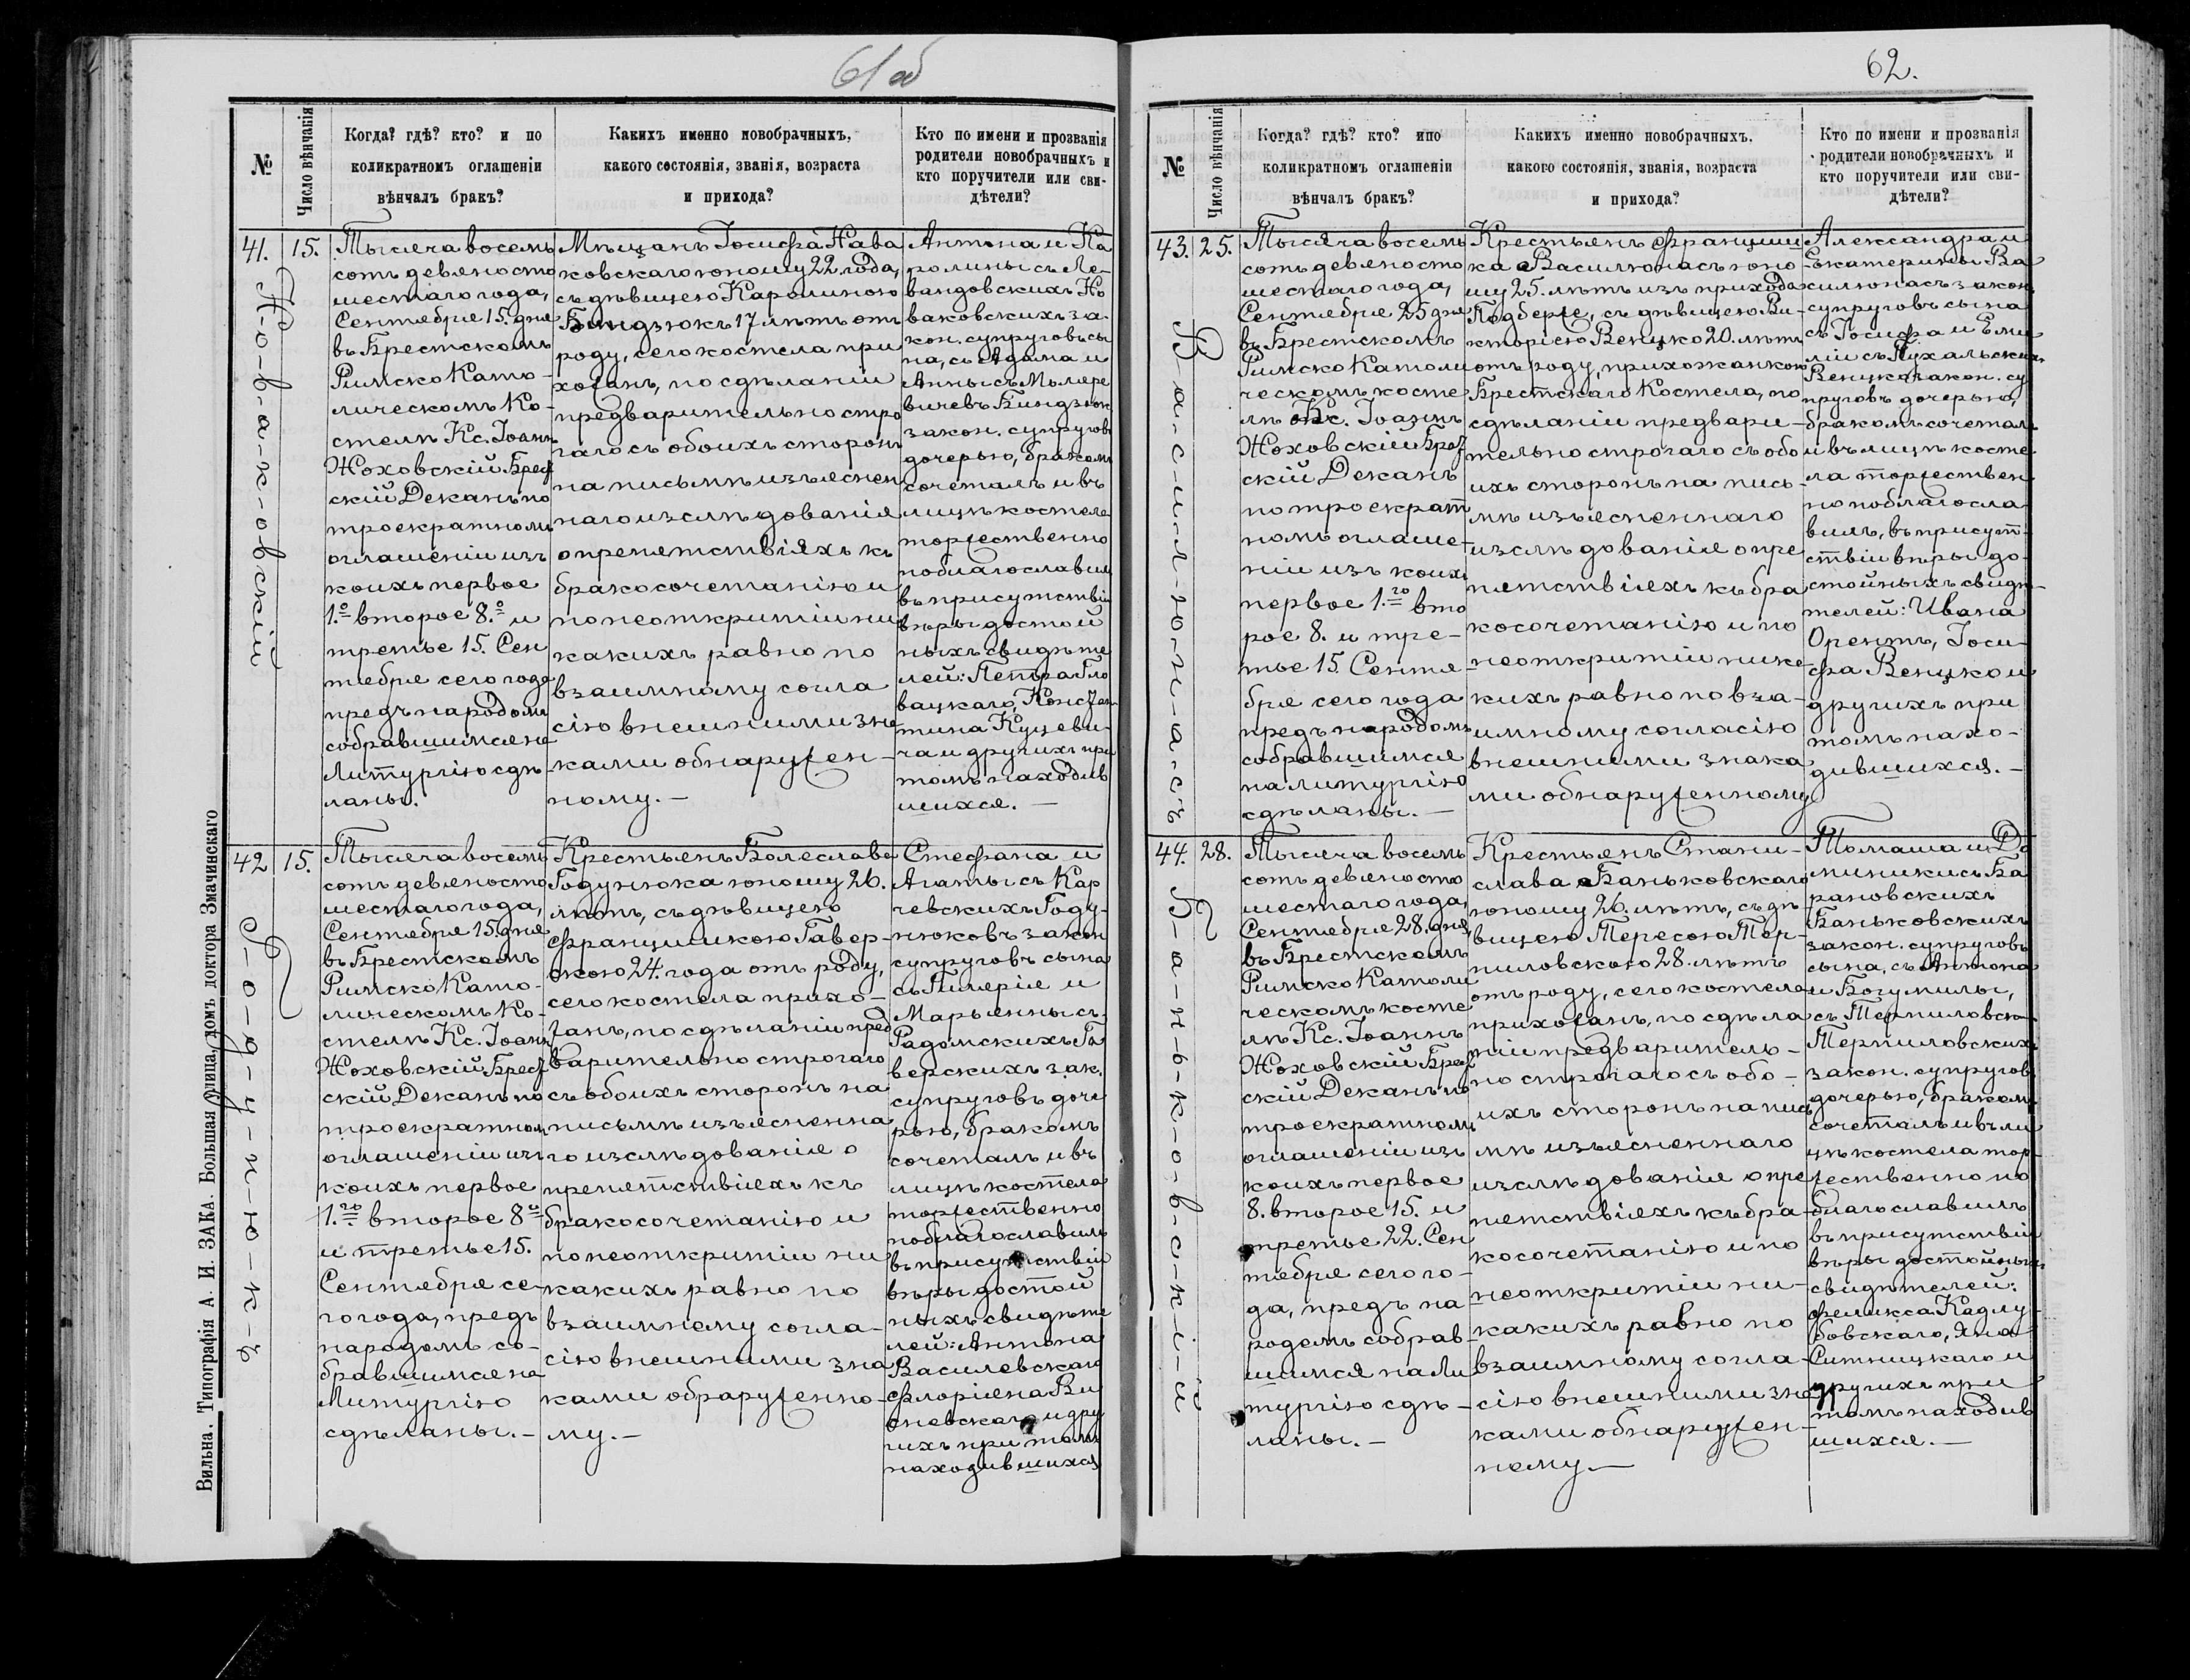 61 об
№
Число вѣнчанія
Когда? гдѣ? кто? и по
коликратномъ оглашеніи
вѣнчалъ бракъ?
Какихъ именно новобрачныхъ,
какого состоянія, званія, возраста
и прихода?
Кто по имени и прозванія
родители новобрачныхъ и
кто поручители или сви-
дѣтели?
41.
Н-о-в-а-к-овскій
15.
Тысяча восемь
сотъ девяносто
шестаго года,
Сентября 15. дня
въ Брестскомъ
Римско Като-
лическомъ Ко-
стелѣ Кс. Іоаннъ
Жоховскій Брест
скій Деканъ по
троекратномъ
оглашеніи изъ
коихъ первое
1.о второе 8.о и
третье 15. Сен
тября сего года
предъ народомъ
собравшимся на
Литургію сдѣ-
ланы.
Мѣщанъ Іосифа Нава
ковскаго юношу 22 года,
съ дѣвицею Каролиною
Биндзюкъ 17 лѣтъ отъ
роду, сего костела при
хожанъ, по сдѣланіи
предварительно стро
гаго съ обоихъ сторонъ
на письмѣ изъяснен
наго изслѣдованія
о препятствіяхъ къ
бракосочетанію и
по неоткрытіи ни
какихъ равно по
взаимному согла
сію внешними зна
ками обнаружен-
ному.—
Антона и Ка
ролины съ Ле-
вандовскихъ Но
ваковскихъ за-
кон. супруговъ сы
на, съ Адама и
Анны съ Молере
вичевъ Биндзюк
закон. супругов
дочерью, бракомъ
сочеталъ и въ
лицѣ костела
торжественно
поблагославилъ
въ присутствіи
вѣры достой
ныхъ свидѣте
лей: Петра Гло
вацкаго, Констан
тина Куцеви-
ча и другихъ при
томъ находив
шихся.—
42
Г-о-д-у-н-ю-к-ъ
15.
Тысяча восемь
сотъ девяносто
шестаго года,
Сентября 15. дня
въ Брестскомъ
Римско Като-
лическомъ Ко-
стелѣ Кс. Іоаннъ
Жоховскій Брест
скій Деканъ по
троекратном
оглашеніи изъ
коихъ первое
1.го второе 8о
и третье 15.
Сентября се-
го года, предъ
народомъ со-
бравшимся на
Литургію
сдѣланы.—
Крестьянъ Болеслава
Годунюка юношу 26.
лѣтъ, съ дѣвицею
Францишкою Гавер-
скою 24. года отъ роду,
сего костела прихо-
жанъ, по сдѣланіи пред
варительно строгаго
съ обоихъ сторонъ на
письмѣ изъясненна
го изслѣдованія о
препятствіяхъ къ
бракосочетанію и
по неоткрытіи ни
какихъ равно по
взаимному согла-
сію внешними зна
ками обраруженно-
му.—
Стефана и
Агаты съ Кар
чевскихъ Году-
нюковъ закон
супруговъ сына
съ Гилерія и
Марьянны съ
Радомскихъ Га
верскихъ зак.
супруговъ доче
рью, бракомъ
сочеталъ и въ
лицѣ костела
торжественно
поблагославилъ
въ присутствіи
вѣры достой
ныхъ свидѣте
лей: Антона
Василевскаго
Флоріяна Ви
сневскаго и дру
гихъ при томъ
находившихся
Вильна. Типографія А. И. ЗАКА. Большая улица, домъ доктора Змачинскаго
62.
№
Число вѣнчанія
Когда? гдѣ? кто? ипо
коликратномъ оглашеніи
вѣнчалъ бракъ?
Какихъ именно новобрачныхъ.
какого состоянія, званія, возраста
и прихода?
Кто по имени и прозванія
родители новобрачныхъ и
кто поручители или сви-
дѣтели?
43.
В-а-с-и-л-ю-н-а-съ
25.
Тысяча восемь
сотъ девяносто
шестаго года,
Сентября 25 дня
въ Брестскомъ
Римско Католи
ческомъ косте
лѣ Кс. Іоаннъ
Жоховскій Брест
скій Деканъ
по троекрат
номъ оглаше-
ніи изъ коихъ
первое 1.го вто
рое 8. и тре-
тье 15. Сентя-
бря сего года
предъ народомъ
собравшимся
на литургію
сдѣланы.—
Крестьянъ Францишка
ка Василюнасъ юно
шу 25. лѣтъ изъ прихода
Подберже, съ дѣвицею Ви-
кторіею Венцко 20. лѣтъ
отъ роду, прихожанкою
Брестскаго Костела, по
сдѣланіи предвари-
тельно строгаго съ обо
ихъ сторонъ на пись-
мѣ изъясненнаго
изслѣдованія о пре
пятствіяхъ къ бра
косочетанію и по
неоткрытіи ника-
кихъ равно по вза-
имному согласію
внешними знака
ми обнаруженному
Александра и
Екатерины Ва
силюнасъ закон
супруговъ сына
съ Іосифа и Еми
ліи съ Пухальских
Венцко закон. су
пруговъ дочерью,
бракомъ сочеталъ
и въ лицѣ косте
ла торжествен
но поблагосла
вилъ, въ присут-
ствіи вѣры до-
стойныхъ свидѣ-
телей: Ивана
Орентъ, Іоси-
фа Венцко и
другихъ при
томъ нахо-
дившихся.—
44.
Б-а-н-ь-к-о-в-с-к-і-й
28.
Тысяча восемь
сотъ девяносто
шестаго года,
Сентября 28. дня,
въ Брестскомъ
Римско Католи
ческомъ косте
лѣ Кс. Іоаннъ
Жоховскій Брест
скій Деканъ по
троекратномъ
оглашеніи изъ
коихъ первое
8. второе 15. и
третье 22. Сен
тября сего го-
да, предъ на
родомъ собрав-
шимся на Ли
тургію сдѣ-
ланы.—
Крестьянъ Стани-
слава Баньковскаго
юношу 26. лѣтъ, съ дѣ
вицею Тересою Тер-
пиловскою 28. лѣтъ
отъ роду, сего костела
прихожанъ, по сдѣла
ніи предваритель-
но строгаго съ обо-
ихъ сторонъ на пись
мѣ изъясненнаго
изслѣдованія о пре
пятствіяхъ къ бра-
косочетанію и по
неоткрытіи ни-
какихъ равно по
взаимному согла-
сію внешними зна
ками обнаружен-
ному—
Томаша и До
миники съ Ба
рановскихъ
Баньковскихъ
закон. супруговъ
сына, съ Антона
и Богумилы,
съ Терпиловско
Терпиловскихъ
закон. супругов
дочерью, бракомъ
сочеталъ и въ ли
цѣ костела тор-
жественно по
благославилъ
въ присутствіи
вѣры достойныхъ
свидѣтелей:
Феликса Кадлу-
бовскаго, Яна
Ситницкаго и
другихъ при
томъ находив
шихся.—